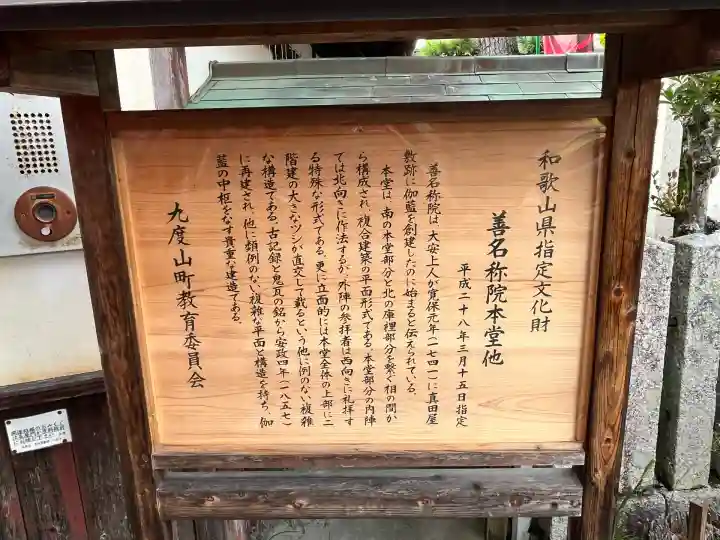 和歌山県指定文化財
善名称院本堂他
平成二十八年三月十五日指定
善名称院は、大安上人が寛保元年(一七四一)に真田屋
敷跡に伽藍を創建したのに始まると伝えられている。
本堂は、南の本堂部分と北の庫裡部分を繋ぐ相の間か
ら構成され、複合建築の平面形式である。本堂部分の内陣
ては北向きに作法するが、外陣の参拝者は西向きに礼拝す
る特殊な形式である。更に立面的には本堂全体の上部に二
階建の大きなツシが直交して載るという他に例のない複雑
な構造である。古記録と鬼瓦の銘から安政四年(一八五七)
に再建され、他に類例のない複雑な平面と構造を持ち、伽
藍の中枢をなす貴重な建造である。
九度山町教育委員会